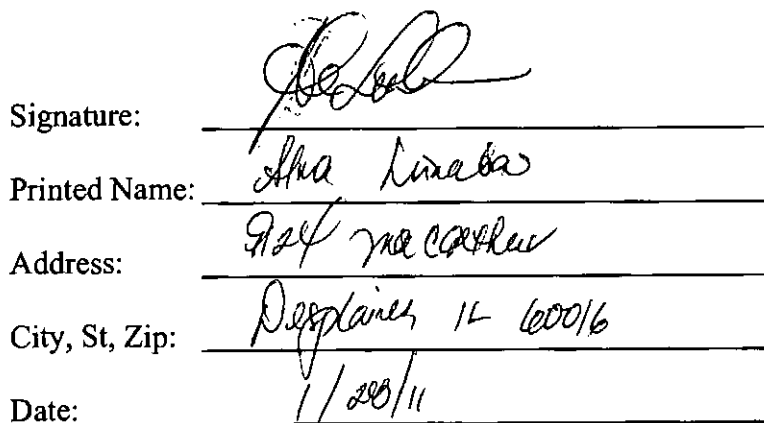 Signature:
Printed Name: Alma
Address: MacArthur
City, St, Zip: Desplaines IL 60016
Date: 1/28/11